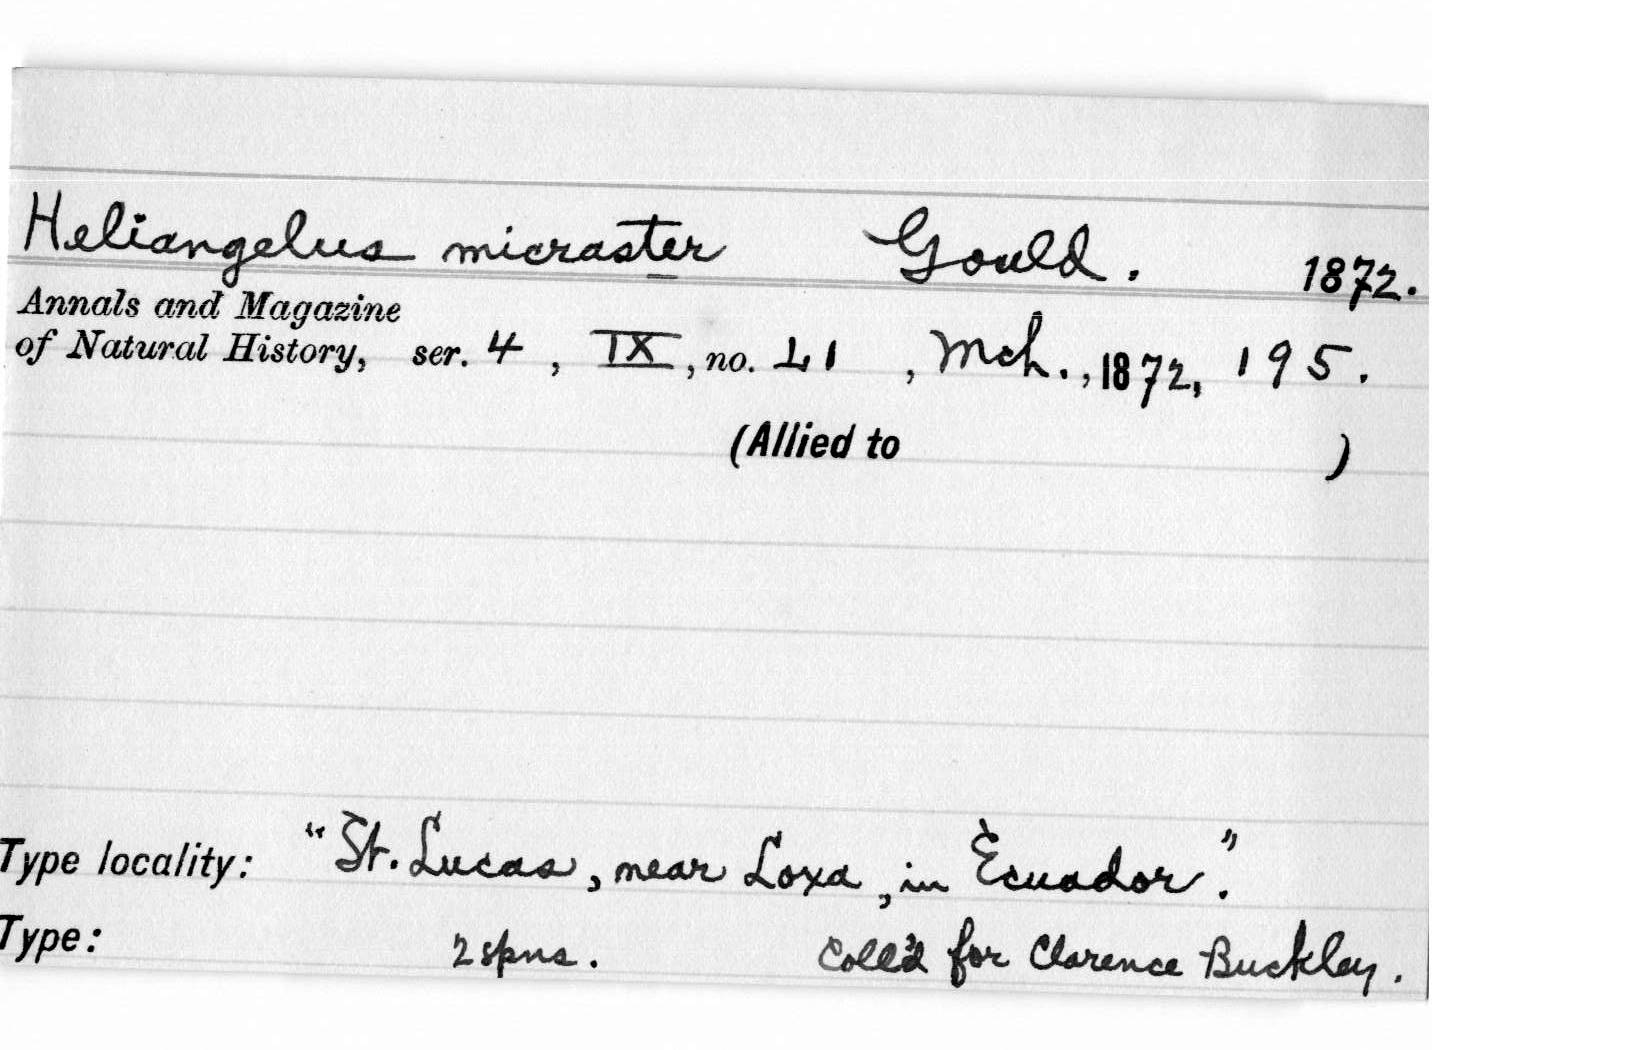 Heliangelus micraster Gould. 1872.
Annals and Magazine
of Natural History, ser. 4, IX, no. 51, Mch., 1872, 195.
(Allied to )
Type locality: "St. Lucas, near Loxa, in Ecuador."
Type: 2 spns. Coll'd for Clarence Buckley.